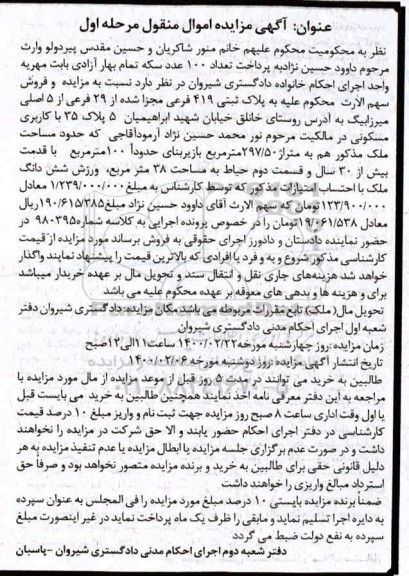 عنوان: آگهی مزایده اموال منقول مرحله اول
نظر به محکومیت محکوم علیهم خانم منور شاکریان و حسین مقدس پیردولو وارث
مرحوم داوود حسین نژادبه پرداخت تعداد ۱۰۰ عدد سکه تمام بهار آزادی بابت مهریه
واحد اجرای احکام خانواده دادگستری شیروان در نظر دارد نسبت به مزایده و فروش
سهم الارث محکوم علیه به پلاک ثبتی ۴۱۹ فرعی مجزا شده از ۲۹ فرعی از ۵ اصلی
میرزابیگ به آدرس روستای خانلق خیابان شهید ابراهیمیان ۵ پلاک ۳۵ با کاربری
مسکونی در مالکیت مرحوم نور محمد حسین نژاد آرمودآقاجی که حدود مساحت
ملک مذکور هم به متراژ۲۹۷/۵۰مترمربع بازیربنای حدودأ ۱۰۰مترمربع با قدمت
بیش از ۳۰ سال و قسمت دوم حیاط به مساحت ۳۸ متر مربع، ورزش شش دانگ
ملک با احتساب امتیازات مذکور که توسط کارشناس به مبلغ ۱/۲۳۹/۰۰۰/۰۰۰ معادل
۱۲۳/۹۰۰/۰۰۰تومان که سهم الارث آقای داوود حسین نژاد مبلغ۱۹۰/۶۱۵/۳۸۵ریال
معادل ۱۹/۰۶۱/۵۳۸تومان را در خصوص پرونده اجرایی به کلاسه شماره۹۸۰۳۹۵ در
حضور نماینده دادستان و دادورز اجرای حقوقی به فروش برساند مورد مزایده از قیمت
کارشناسی مذکور شروع و به و فرد یا افرادی که بالاترین قیمت را پیشنهاد نمایند واگذار
خواهد شد هزینه‌های جاری نقل و انتقال سند و تحویل مال بر عهده خریدار میباشد
برای و هزینه ها و بدهی های معوقه بر عهده محکوم علیه می باشد
تحویل مال(ملک) تابع مقررات مربوطه می باشد مکان مزایده: دادگستری شیروان دفتر
شعبه اول اجرای احکام مدنی دادگستری شیروان
زمان مزایده :روز چهارشنبه مورخه ۱۴۰۰/۰۲/۲۲ ساعت ۱۱الی۱۲صبح
تاریخ انتشار آگهی مزایده :روز دوشنبه مورخه ۱۴۰۰/۰۲/۰۶
طالبین به خرید می توانند در مدت ۵ روز قبل از موعد مزایده از مال مورد مزایده با
مراجعه به این دفتر معرفی نامه اخذ نمایند همچنین طالبین به خرید می بایست قبل
یا اول وقت اداری ساعت ۸ صبح روز مزایده جهت ثبت نام و واریز مبلغ ۱۰ درصد قیمت
کارشناسی در دفتر اجرای احکام حضور یابند و الا حق شرکت در مزایده را نخواهند
داشت و در صورت عدم برگزاری جلسه مزایده یا ابطال مزایده یا عدم تنفیذ مزایده به هر
دلیل قانونی حقی برای طالبین به خرید و برنده مزایده متصور نخواهد بود و صرفأ حق
استرداد مبالغ واریزی را خواهند داشت
ضمنأ برنده مزایده بایستی ۱۰ درصد مبلغ مورد مزایده را فی المجلس به عنوان سپرده
به دایره اجرا تسلیم نماید و مابقی را ظرف یک ماه پرداخت نماید در غیر اینصورت مبلغ
سپرده به نفع دولت ضبط می گردد
دفتر شعبه دوم اجرای احکام مدنی دادگستری شیروان -پاسبان